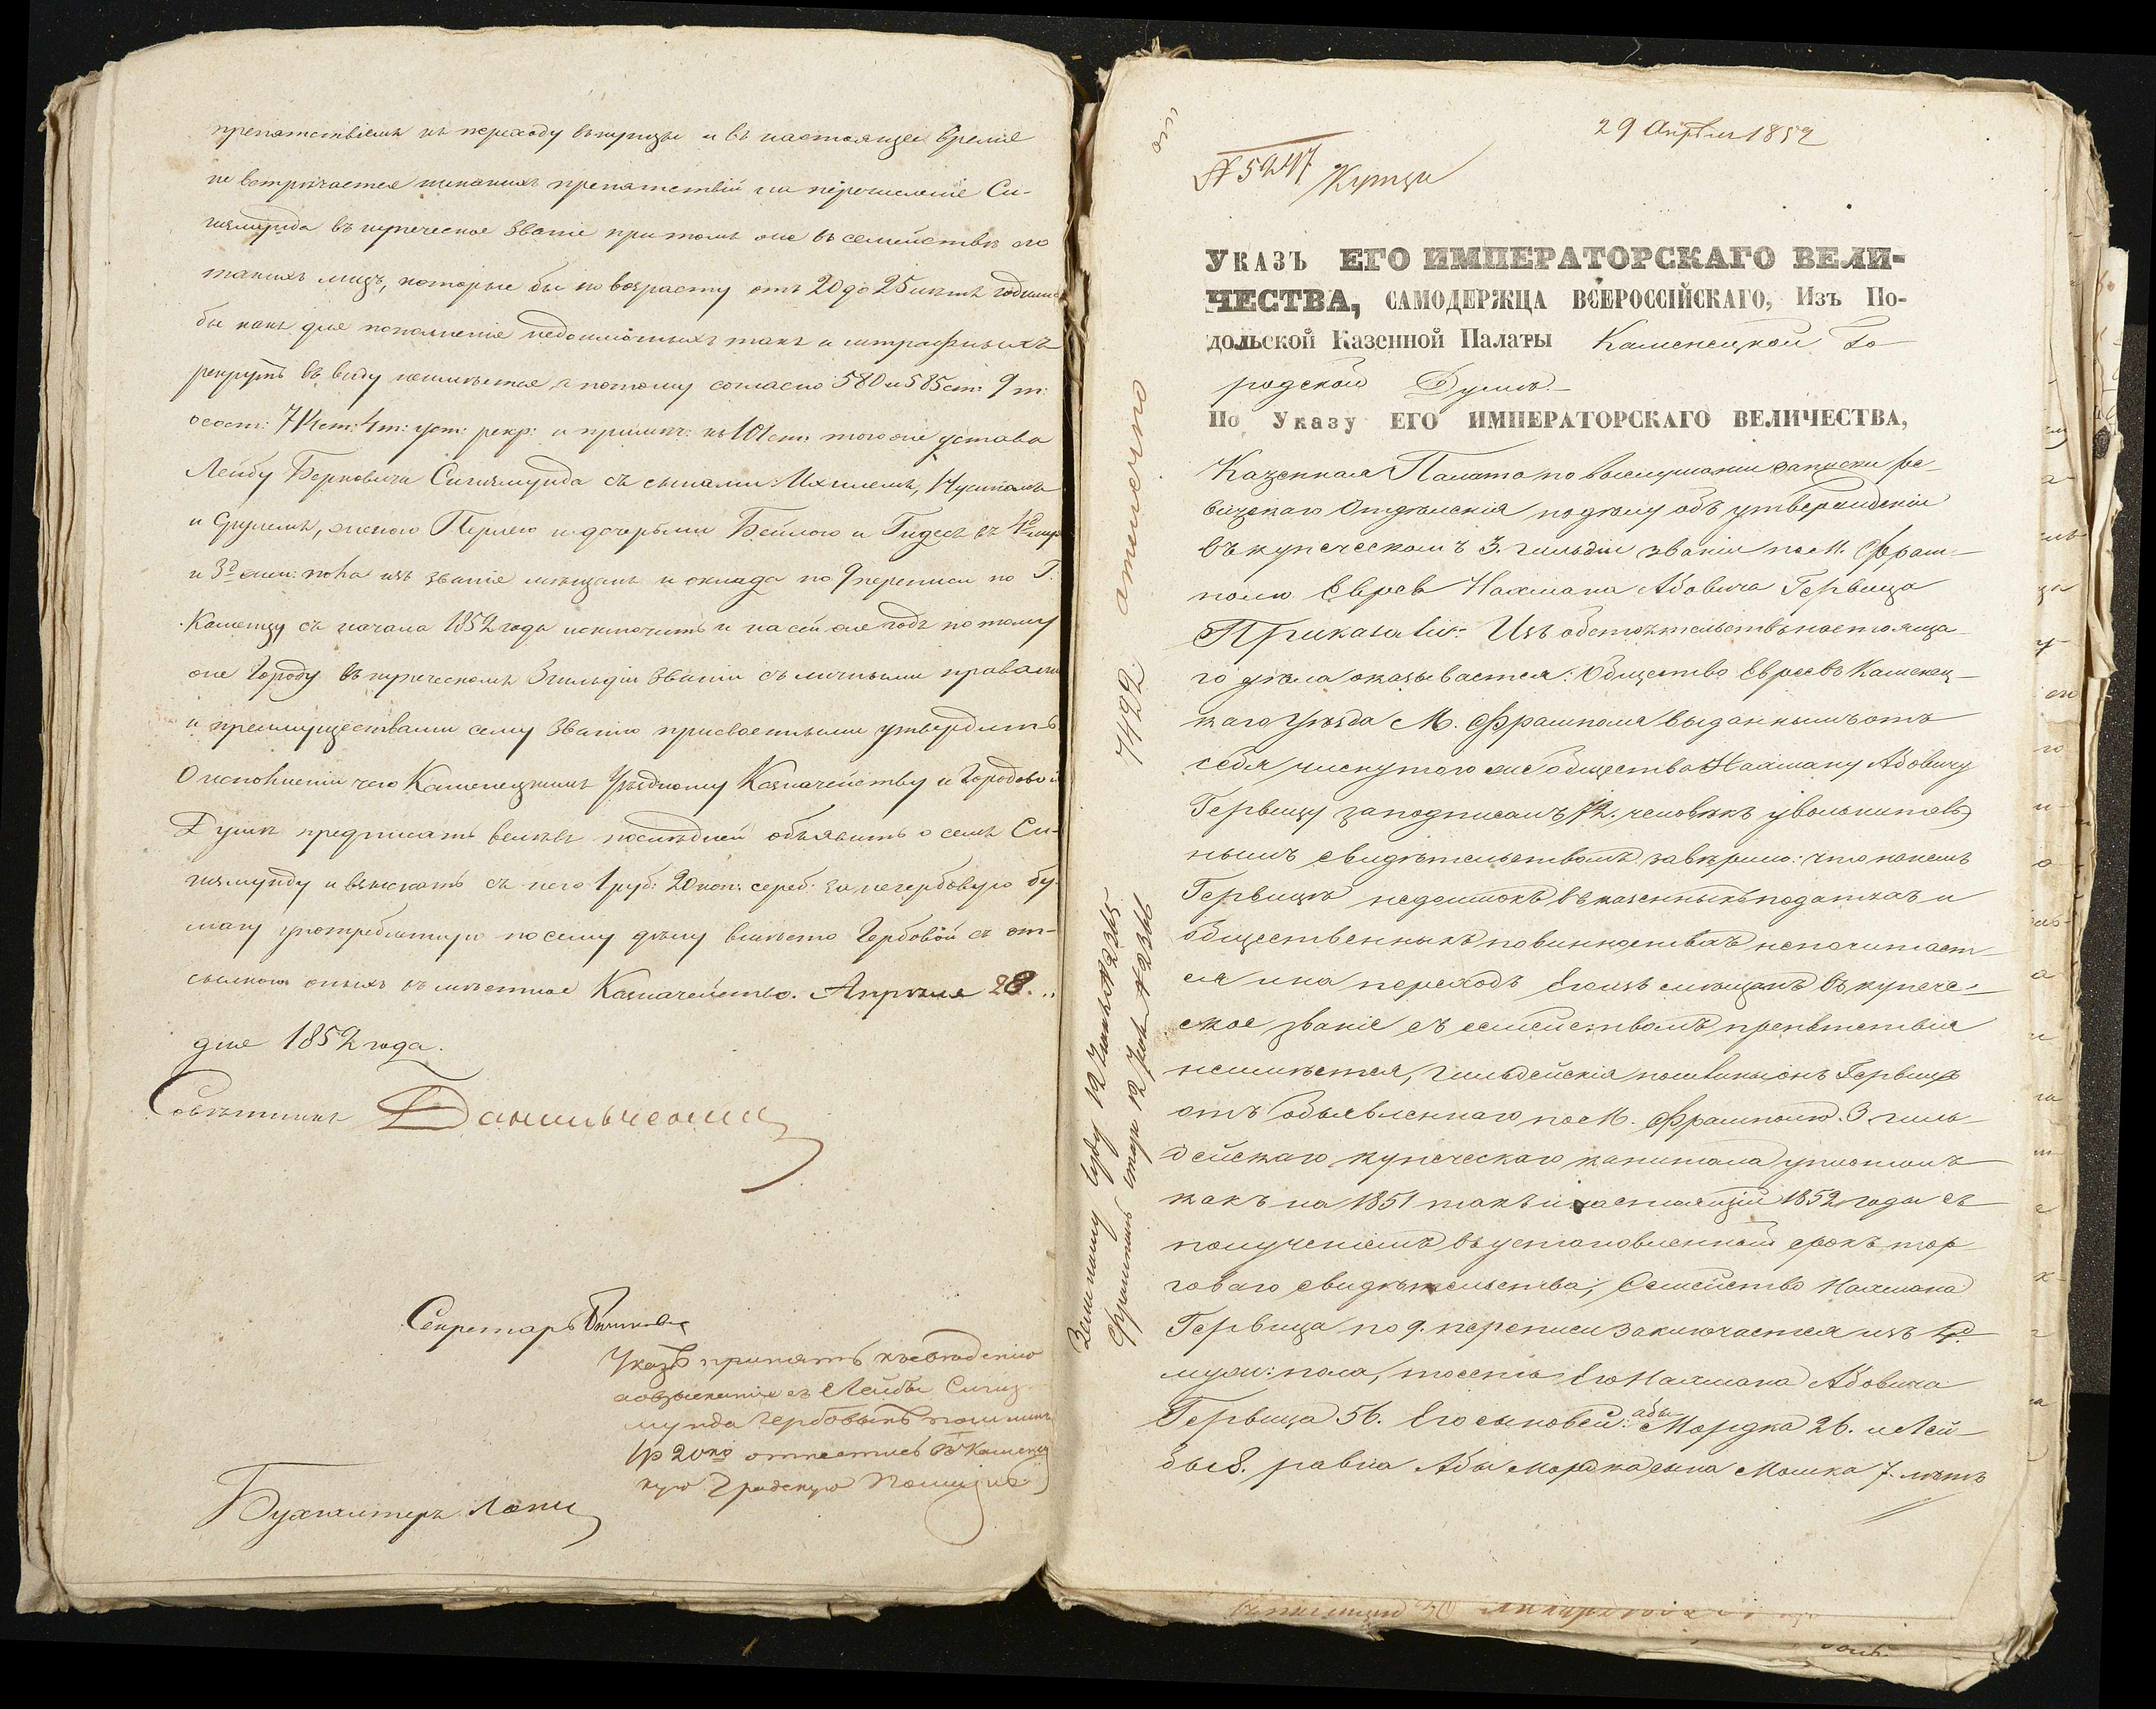 препятствіемъ къ переходу въ купцы и въ настоящее время
не встрѣчается никакихъ препятствій на перечисленіе Си-
гизмунда въ купеческое званіе притомъ же въ семействѣ его
такихъ лицъ, которые бы по возрасту отъ 20 до 25 лѣтъ годились
бы какъ для пополненія недоимочныхъ такъ и штрафныхъ
рекрутъ въ виду неимѣется а потому согласно 580 и 585 ст: 9 т:
о сост: 714 ст: 4 т: уст: рекр: и примѣч: къ 101 ст: того же устава
Лейбу Берковича Сигизмунда съ сынами: Ихилемъ, Нусипомъ
и Срулемъ, женою Перлею и дочерьми Бейлою и Гидесъ въ 4д муж:
и 3д жен: пола изъ званія мѣщанъ и оклада по 9 переписи по Г.
Каменцу съ начала 1852 года исключить и на сей же годъ по тому
же Городу въ купеческомъ 3 гильдіи званіи съ личными правами
и преимуществами сему званію присвоенными утвердить
О исполненіи чего Каменецкимъ Уѣздному Казначейству и Городовой
Думѣ предписать велѣвъ послѣдней объявить о семъ Си-
гизмунду и взыскать съ него 1 руб: 20 коп: сереб: за негербовую бу-
магу употребленную по сему дѣлу вмѣсто Гербовой съ от-
сылкою оныхъ въ мѣстное Казначейство. Апрѣля 28...
дня 1852 года.
Совѣтникъ Данильченко
Секретарь
Указъ принять къ свѣденію
а о взысканіи съ Лейбы Сигиз-
мунда Гербовыхъ пошлинъ
1 р 20 ко отнестись въ Каменец
кую Градскую Полицію
Бухгалтеръ
29 Апрѣля 1852
№ 5247 Купцы
Указъ ЕГО ИМПЕРАТОРСКАГО ВЕЛИ-
ЧЕСТВА, САМОДЕРЖЦА ВСЕРОССІЙСКАГО, Изъ По-
дольской Казенной Палаты Каменецкой Го
родской Думѣ.
По Указу ЕГО ИМПЕРАТОРСКАГО ВЕЛИЧЕСТВА,
Казенная Палата по выслушаніи записки ре-
визскаго Отдѣленія по дѣлу объ утвержденіи
въ купеческомъ 3. гильдіи званіи по м. Фрам-
полю Еврея Нахмана Абовича Гервица
Приказали: Изъ обстоятельствъ настояща
го дѣла оказывается: Общество Евреевъ Каменец-
каго Уѣзда М. Фрамполя выданнымъ отъ
себя члену того же общества Нахману Абовичу
Гервицу за подписомъ 72. человѣкъ увольнитель
нымъ свидѣтельствомъ завѣрило: что на немъ
Гервицѣ недоимокъ въ казенныхъ податяхъ и
общественныхъ повинностяхъ непочитает-
ся и на переходъ его изъ мѣщанъ въ купече-
ское званіе съ семействомъ препятствія
неимѣется, Гильдейскія пошлины онъ Гервицъ
отъ объявленнаго по М. Фрамполю. 3. гиль-
дейскаго купеческаго капитала уплотилъ
какъ на 1851 такъ и настоящій 1852 годы съ
полученіемъ въ установленный срокъ тор-
говаго свидѣтельства; Семейство Нахмана
Гервица по 9. переписи заключается изъ 4д
муж: пола, то есть его Нахмана Абовича
Гервица 56. его сыновей: абы Мордка 26. и Лей-
бы 8. равна Абы Мордка сына Мошка 7. лѣтъ
7422. отмѣчено
Земскому суду 12 Іюня № 2365
Фрампол. стар. 12 Іюня № 2366